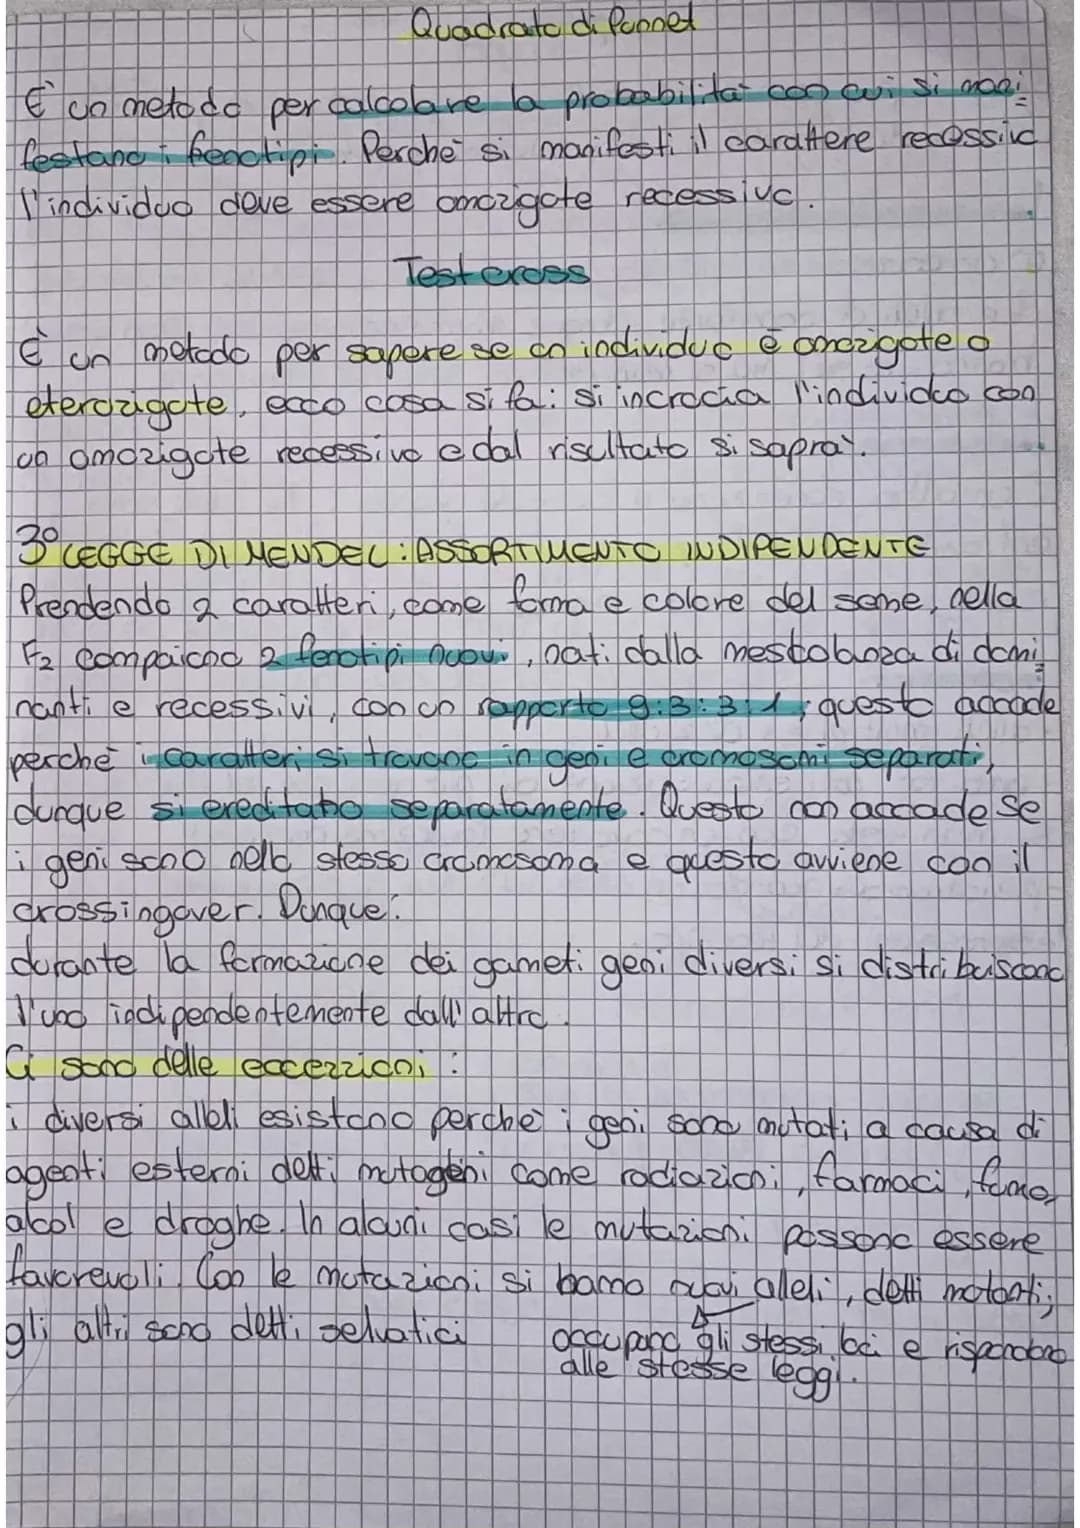 Quadrato di Punnet
È un metodo per calcolare la probabilità con cui si mani
festano i fenotipi. Perchè si manifesti il carattere recessivo
l'individuo deve essere omozigote recessivo.
Test cross
È un metodo per sapere se un individuo è omozigote o
eterozigote, ecco cosa si fa: si incrocia l'individuo con
un omozigote recessivo e dal risultato si saprà.
3° LEGGE DI MENDEL: ASSORTIMENTO INDIPENDENTE
Prendendo 2 caratteri, come forma e colore del seme, nella
F2 compaiono 2 fenotipi nuovi, nati dalla mescolanza di domi
nanti e recessivi, con un rapporto 9:3:3:1; questo accade
perchè i caratteri si trovano in geni e cromosomi separati,
dunque si ereditano separatamente. Questo non accade se
i geni sono nello stesso cromosoma e questo avviene con il
crossingover. Dunque:
durante la formazione dei gameti geni diversi si distribuiscono
l'uno indipendentemente dall'altro.
Ci sono delle eccezzioni:
i diversi alleli esistono perchè i geni sono mutati a causa di
agenti esterni detti mutageni come radiazioni, farmaci, fumo,
alcol e droghe. In alcuni casi le mutazioni possono essere
favorevoli. Con le mutazioni si hanno nuovi alleli, detti mutanti;
gli altri sono detti selvatici
occupano gli stessi loci e rispondono
alle stesse leggi.